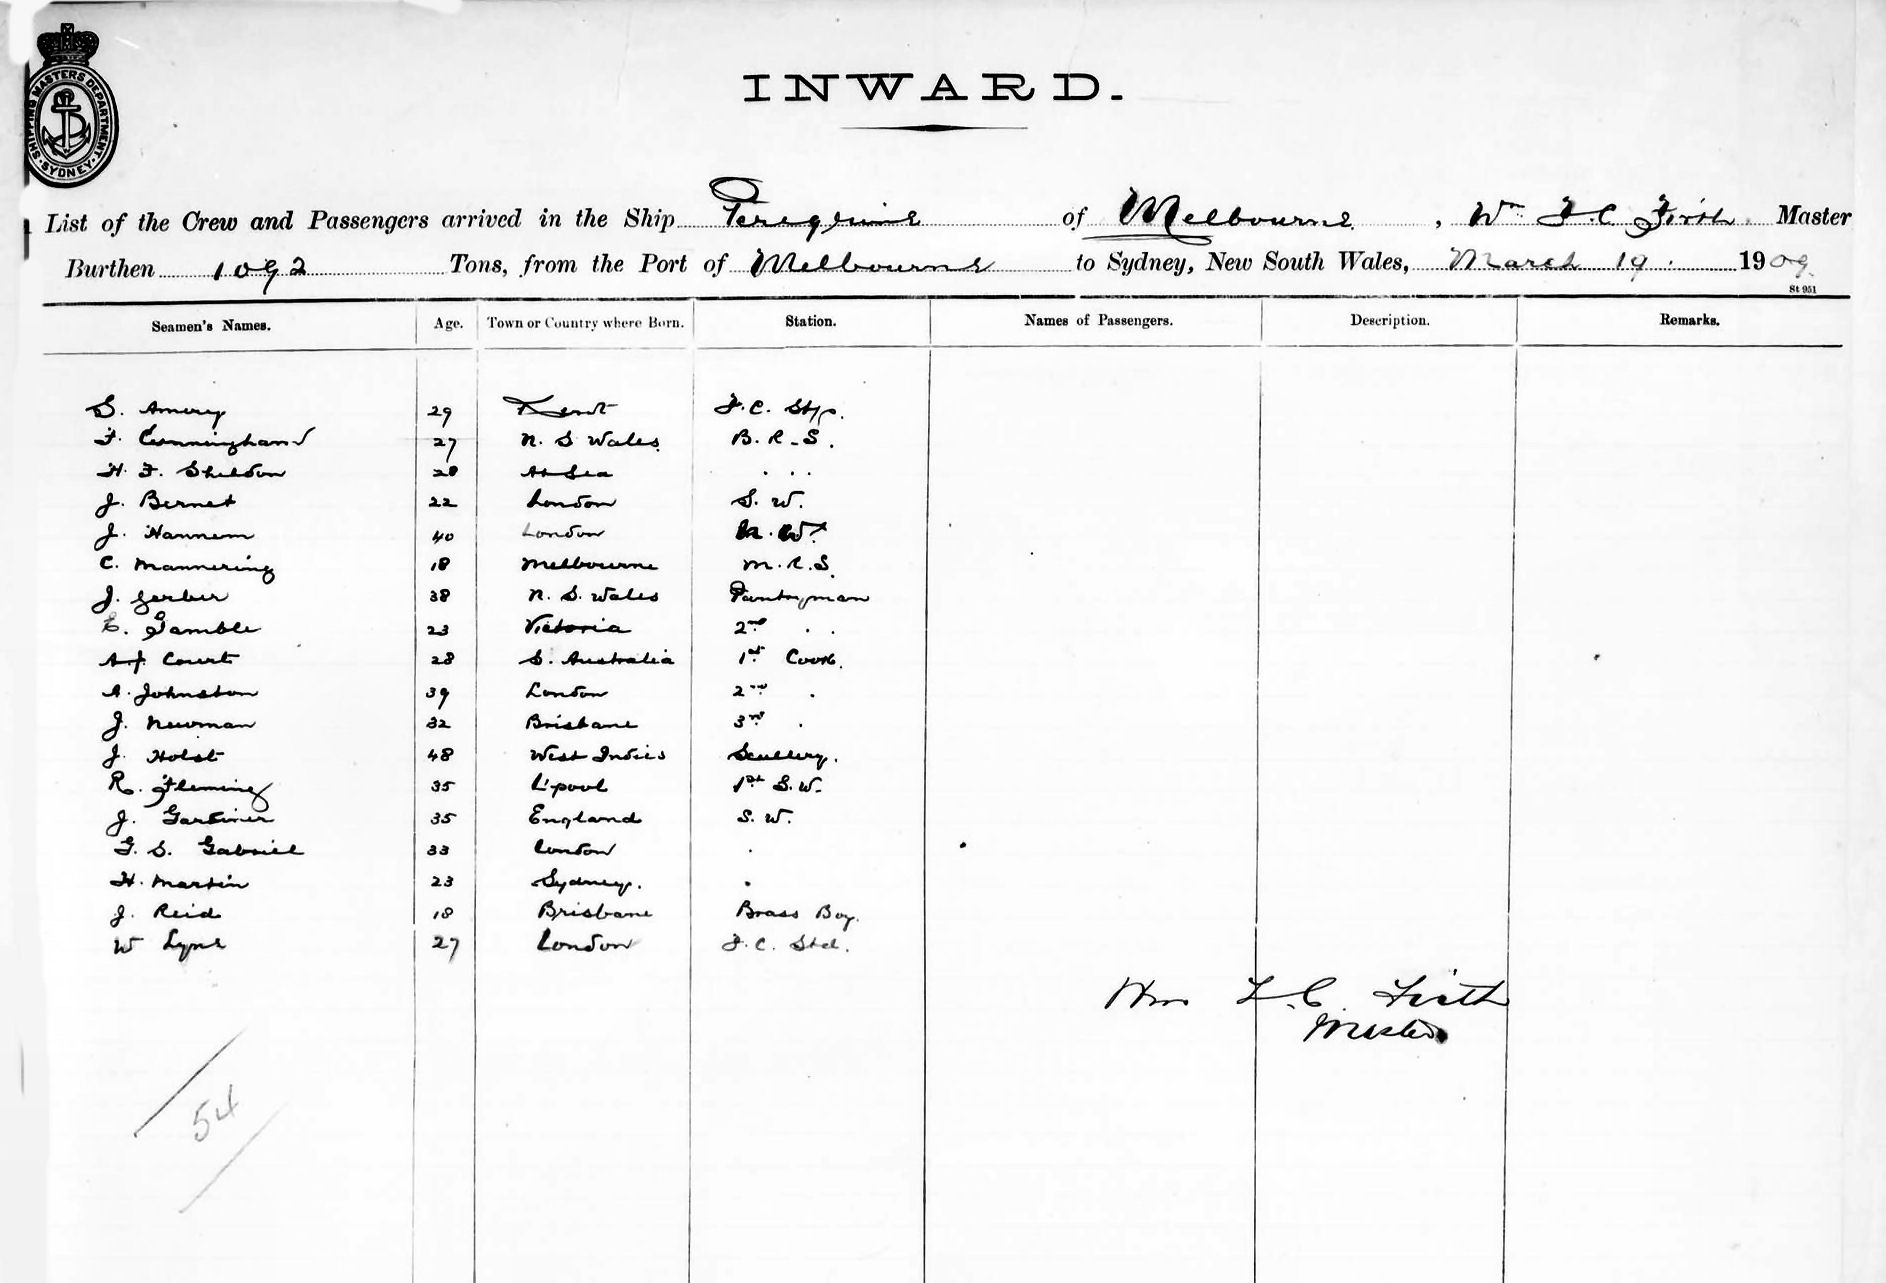 SHIPPING MASTERS DEPARTMENT · SYDNEY ·
INWARD.
List of the Crew and Passengers arrived in the Ship Peregrine of Melbourne, Wm F.C Firth Master
Burthen 1092 Tons, from the Port of Melbourne to Sydney, New South Wales, March 19. 1909.
St 951
Seamen's Names. Age. Town or Country where Born. Station. Names of Passengers. Description. Remarks.
S. Amery 29 Kent F.C. Stp.
F. Cunningham 27 N. S Wales. B. R. S.
H. F. Sheldon 28 At Sea . . .
J. Bernet 22 London S. W.
J. Hannem 40 London
C. Mannering 18 Melbourne M. R. S.
J. Gerber 38 N. S. Wales Pantryman
E. Gamble 23 Victoria 2nd . .
A J Court 28 S. Australia 1st Cook.
A. Johnston 39 London 2nd .
J. Newman 32 Brisbane 3rd .
J. Holst 48 West Indies Scullery.
R. Fleming 35 L'pool 1st S.W.
J. Gardiner 35 England S. W.
G. S. Gabriel 33 London .
H. Martin 23 Sydney. .
J. Reid 18 Brisbane Brass Boy.
W Lyne 27 London F.C. Std.
Wm F.C. Firth
Master
54